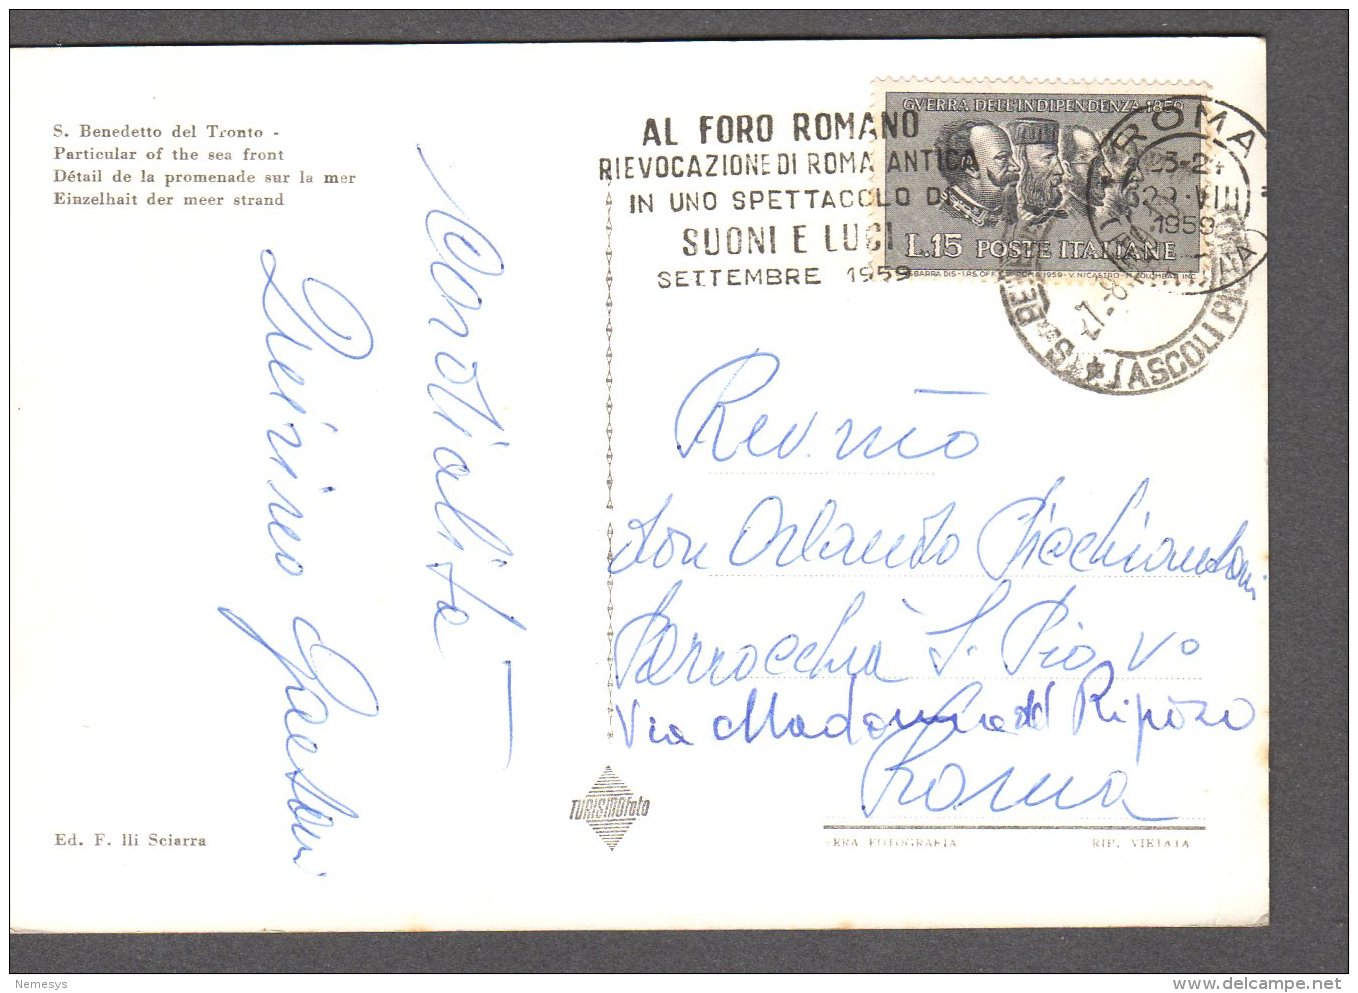 S. Benedetto del Tronto -
Particular of the sea front
Détail de la promenade sur la mer
Einzelhait der meer strand
AL FORO ROMANO
RIEVOCAZIONE DI ROMA ANTICA
IN UNO SPETTACOLO DI
SUONI E LUCI
SETTEMBRE 1959
GVERRA DELL'INDIPENDENZA 1859
L.15 POSTE ITALIANE
ROMA
23-24
29·VIII
1959
(ASCOLI
Cordialità
Rev.mo
don Orlando
Parrocchia S. Pio V°
Via Madonna del Riposo
Roma
TURISMOfoto
Ed. F. lli Sciarra
VERA FOTOGRAFIA
RIP. VIETATA
Nemesys
delcampe.net